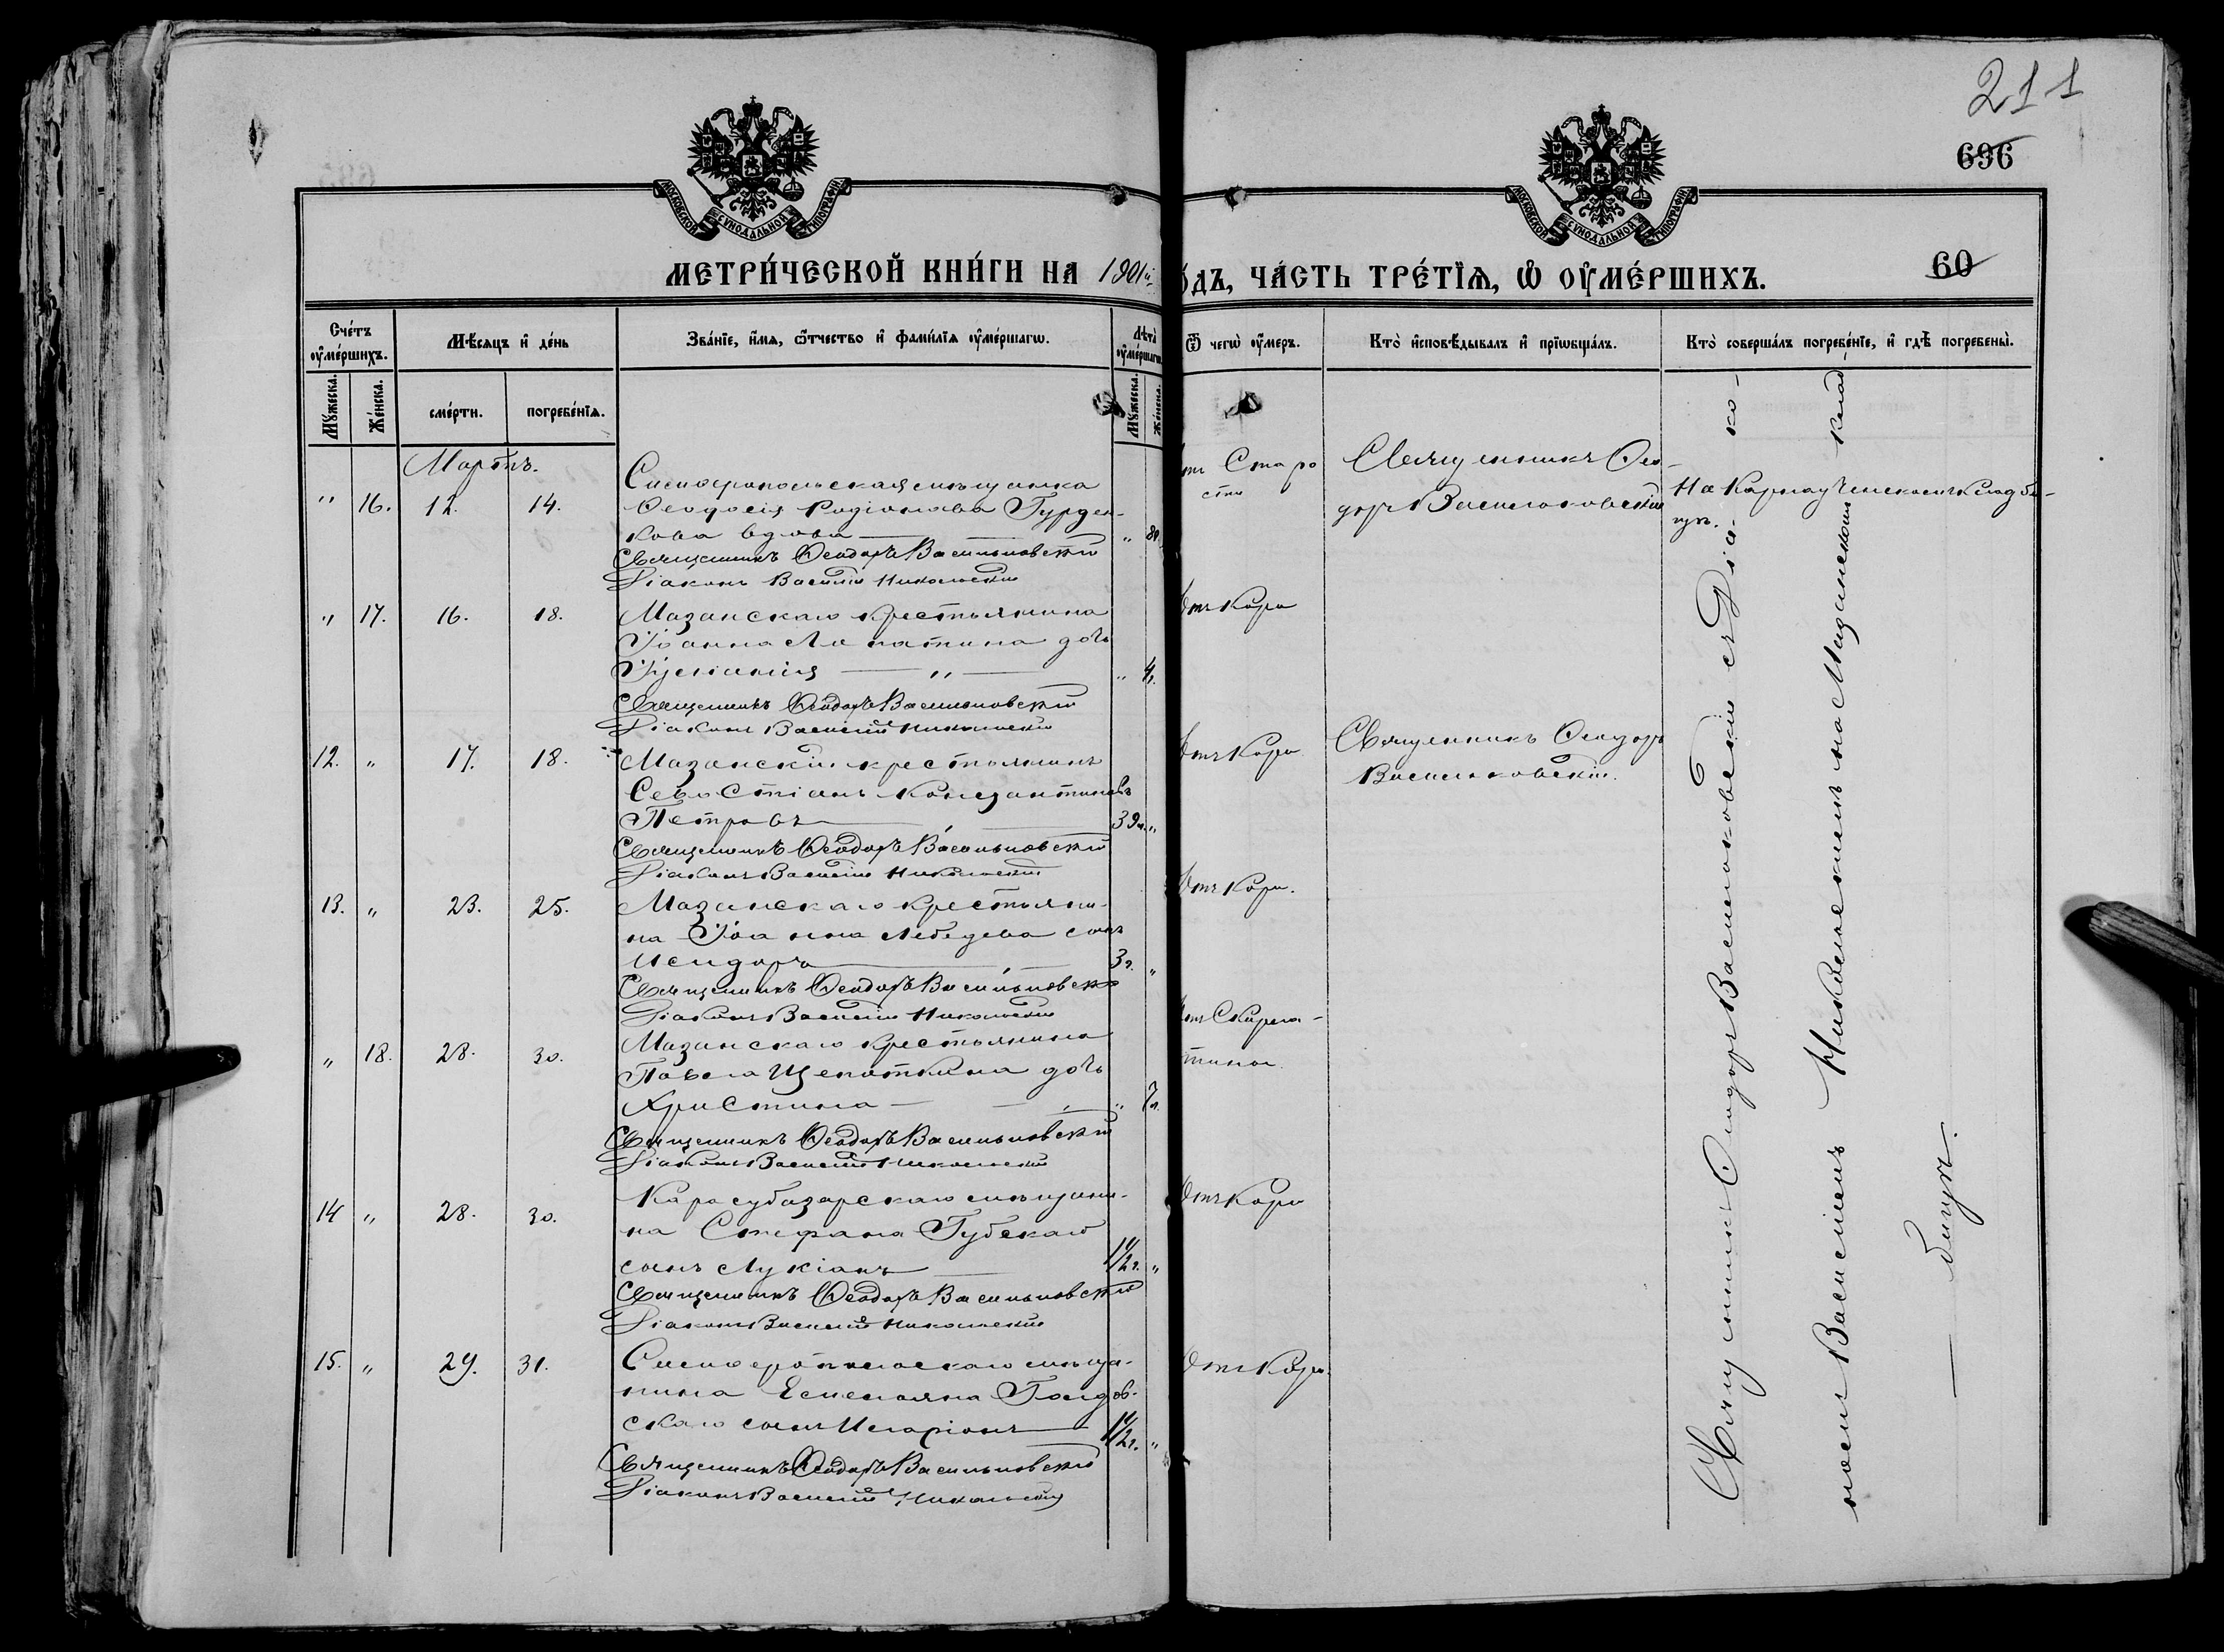 211
696
60
МОСКОВСКОЙ СѴНОДАЛЬНОЙ ТИПОГРАФІИ
МОСКОВСКОЙ СѴНОДАЛЬНОЙ ТИПОГРАФІИ
МЕТРИ́ЧЕСКОЙ КНИ́ГИ НА 1901й
о́дъ, ЧА́СТЬ ТРЕ́ТІѦ, Ѡ҆ ОУ҆МЕ́РШИХЪ.
Сче́тъ оу҆ме́ршихъ.
Мѣ́сѧцъ и҆ де́нь
Зва́нїе, и҆́мѧ, ѻ҆́тчество и҆ фами́лїѧ оу҆ме́ршагѡ.
Лѣ́та оу҆ме́ршагѡ
Ѿ чегѡ̀ оу҆́меръ.
Кто̀ и҆сповѣ́дывалъ и҆ прїѡбща́лъ.
Кто̀ соверша́лъ погребе́нїе, и҆ гдѣ̀ погребены̀.
Мꙋ́жеска.
Же́нска.
сме́рти.
погребе́нїѧ.
Мꙋ́жеска.
Же́нска.
Мартъ.
" 16. 12. 14.
Симферопольская мѣщанка
Ѳеодосія Родіонова Гурден-
кова вдова " 80
Священникъ Ѳеодоръ Васильковскій
Діаконъ Василій Никольскій
отъ Старо
сти
Священникъ Ѳео-
доръ Васильковскій
На Карнаученскомъ кладби-
щѣ.
" 17. 16. 18.
Мазанскаго крестьянина
Іоанна Лопатина дочь
Іуліанія " " 4.
Священникъ Ѳеодоръ Васильковскій
Діаконъ Василій Никольскій
Отъ Кори
12. " 17. 18.
Мазанскій крестьянинъ
Севостіанъ Константиновъ
Петровъ 39 л. "
Священникъ Ѳеодоръ Васильковскій
Діаконъ Василій Никольскій
Отъ Кори
Священникъ Ѳеодоръ
Васильковскій.
13. " 23. 25.
Мазанскаго крестьяни-
на Іоанна Лебедева сынъ
Исидоръ 3 г. "
Священникъ Ѳеодоръ Васильковскій
Діаконъ Василій Никольскій
Отъ Кори.
" 18. 28. 30.
Мазанскаго крестьянина
Павла Щепоткина дочь
Христина " 7 л.
Священникъ Ѳеодоръ Васильковскій
Діаконъ Василій Никольскій
Отъ Скарла-
тины
14 " 28. 30.
Карасубазарскаго мѣщани-
на Стефана Губскаго
сынъ Лукіанъ 1 1/2 г. "
Священникъ Ѳеодоръ Васильковскій
Діаконъ Василій Никольскій
Отъ Кори
15. " 29. 31.
Симферопольскаго мѣща-
нина Емеліана Голдов-
скаго сынъ Иларіонъ 1 1/2 г. "
Священникъ Ѳеодоръ Васильковскій
Діаконъ Василій Никольскій
Отъ Кори.
Священникъ Ѳеодоръ Васильковскій съ Діа-ко-
номъ Василіемъ Никольскимъ на Мазанскомъ клад
бищѣ.